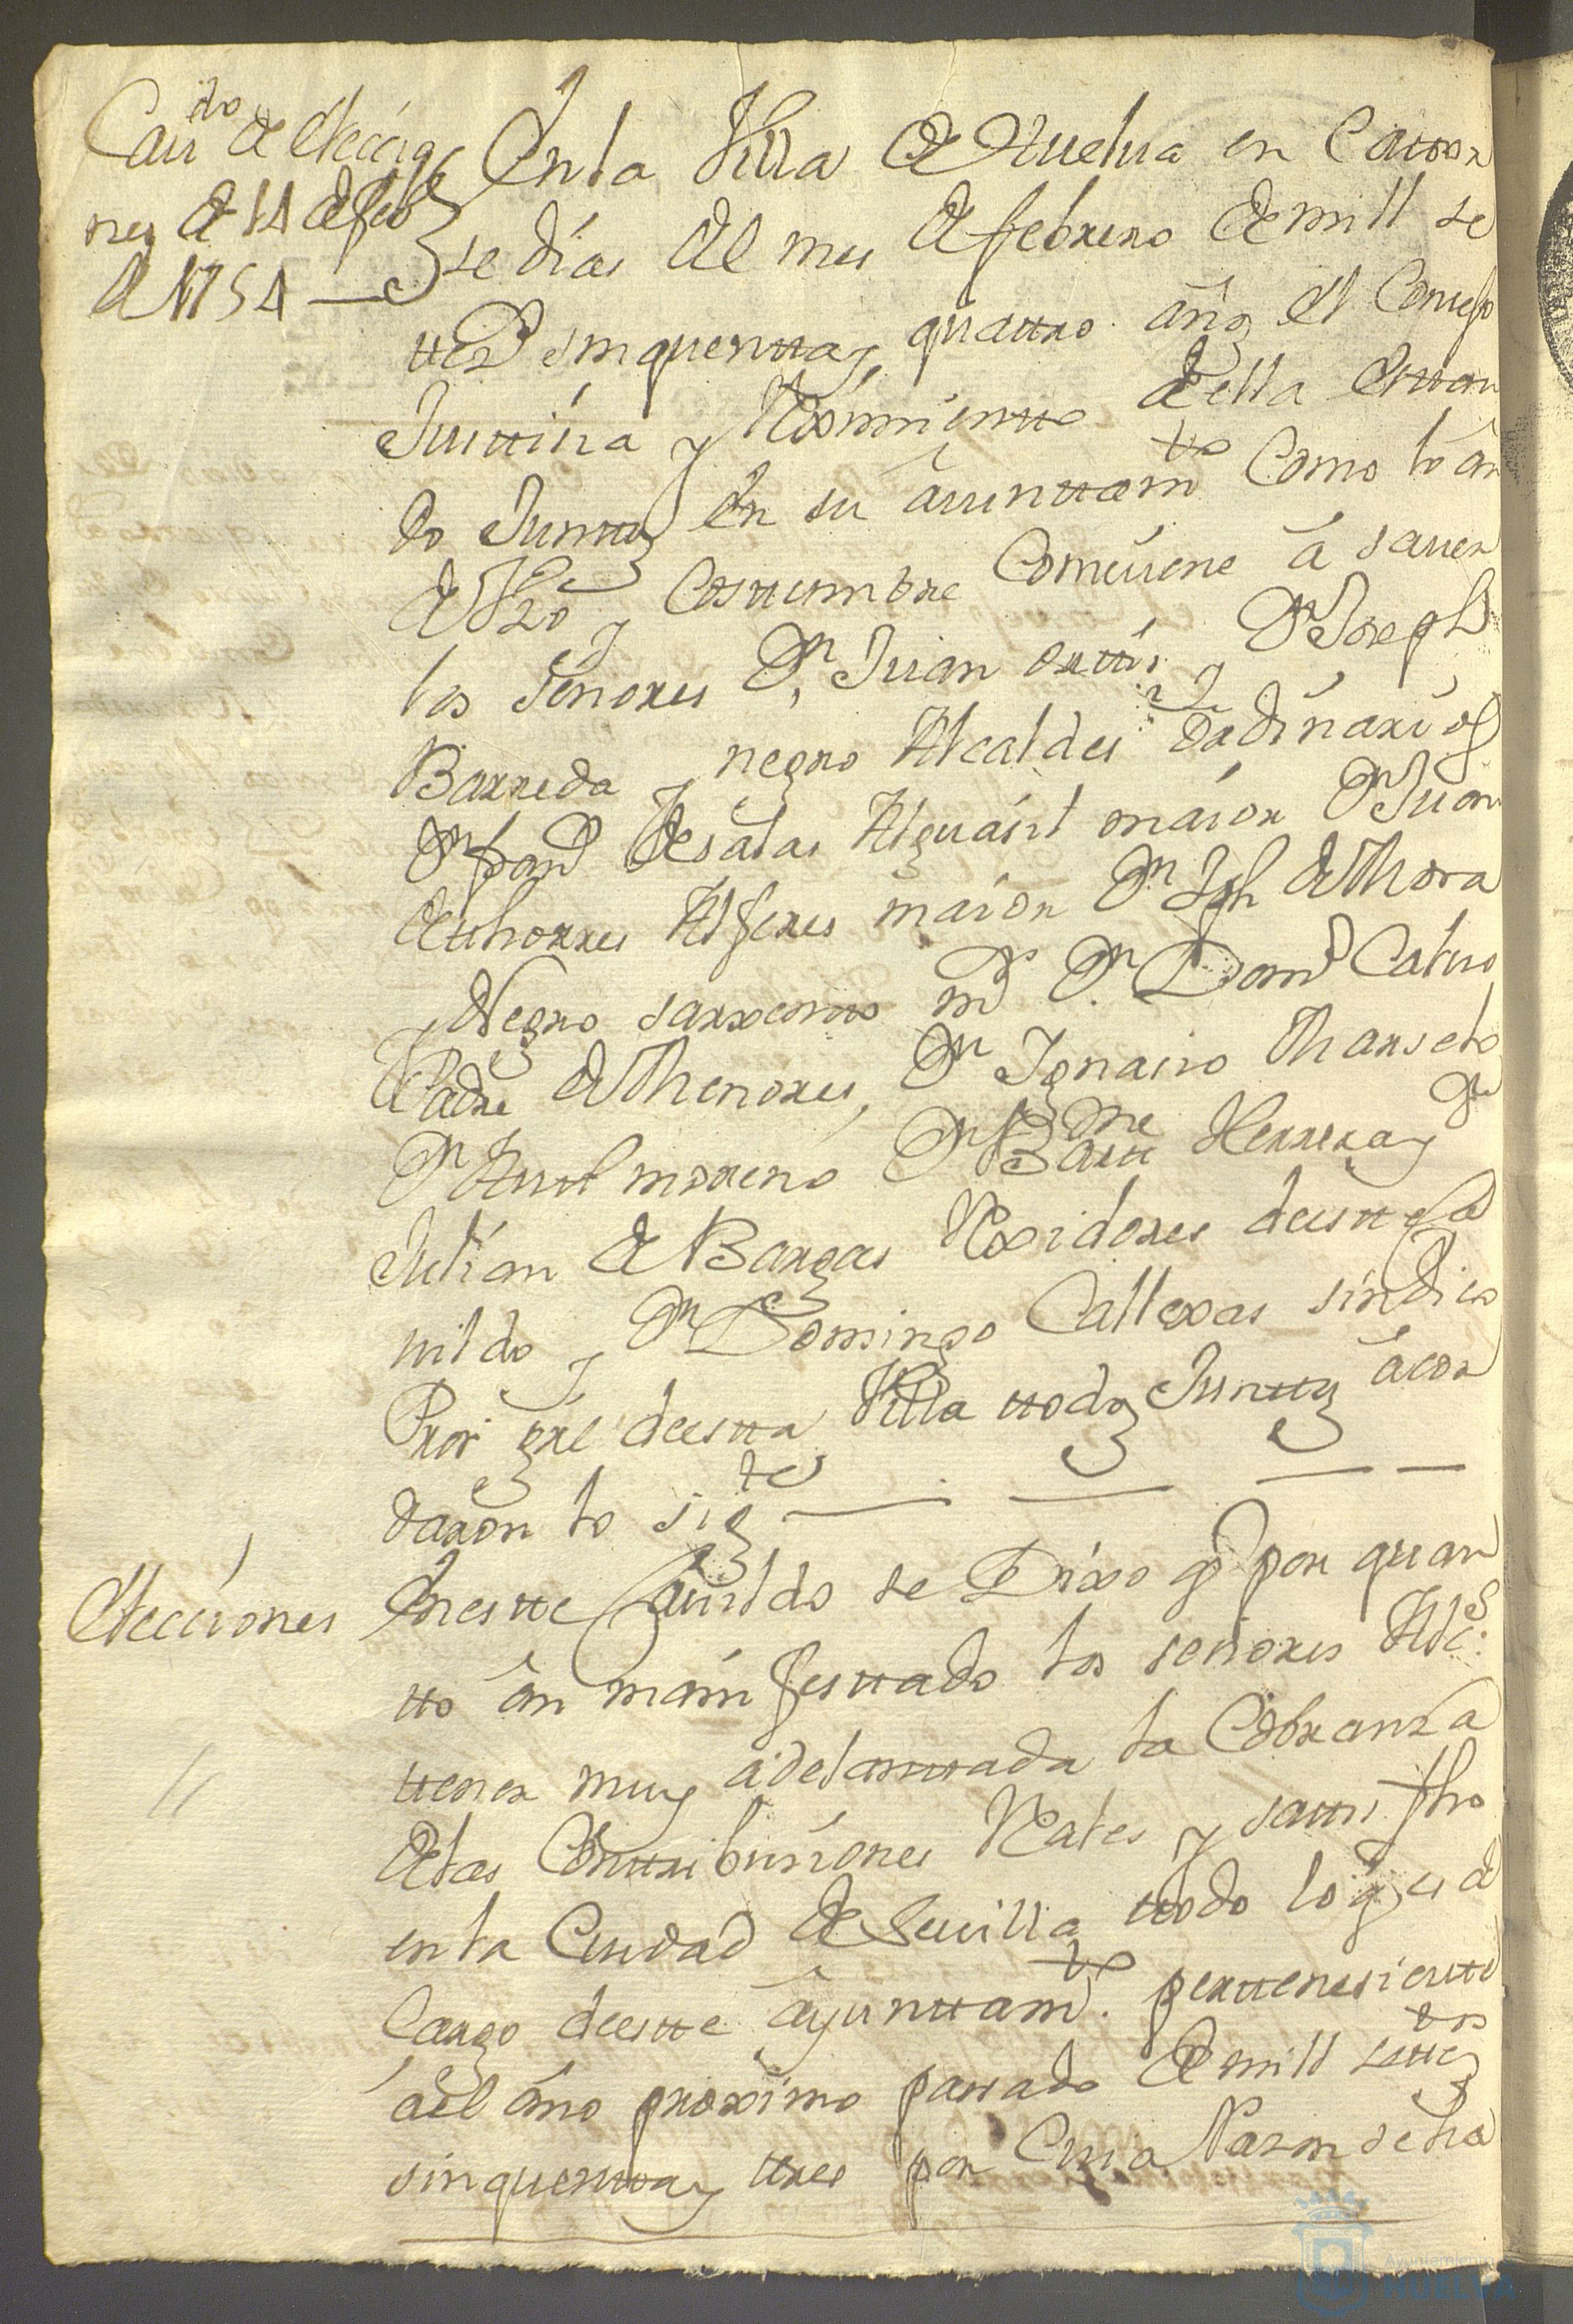 Caudo de Eleccio
nes de 14 de febo
de 1754
En la Villa de Huelva en Cator
se días del mes de febrero de mill se
ttezs sinquentta y quattro años el Consejo
Justtisia y Reximientto de ella esttan
do Junttos en su aiunttamto Como lo an
de Uso y Costtumbre Comuiene á sauer
los Señores Dn Juan orttis y Dn Joseph
Barreda y negro Alcaldes ordinarios
Dn franco de salas Alguasil maior Dn Juan
de thorres Alferes maior Dn Jph de Mora
y Negro sarxentto mr Dn Domo Calvo
Padre de Menores, Dn Ignacio Marselo
Dn Anttto moreno Dn Bartme Herrera y Dn
Julian de Bargas Rexidores de estte Ca
uildo y Dn Domingo Callexas síndico
Pror gral de estta Villa ttodos Junttos acor
daron lo sigtte
Elecciones
En estte Cauildo se Dixo qe por quan
tto an manifesttado los señores Alcs
ttener muy adelanttada la Cobranza
de las Conttribusiones Rales y sattisfho
en la Ciudad de Seuilla ttodo lo qe es de
Cargo de estte ayunttamto pertteneciente
ael año proximo pasado de mill settezos
sinquentta y ttres por Cuia Razon se ha
Ayuntamiento
HUELVA